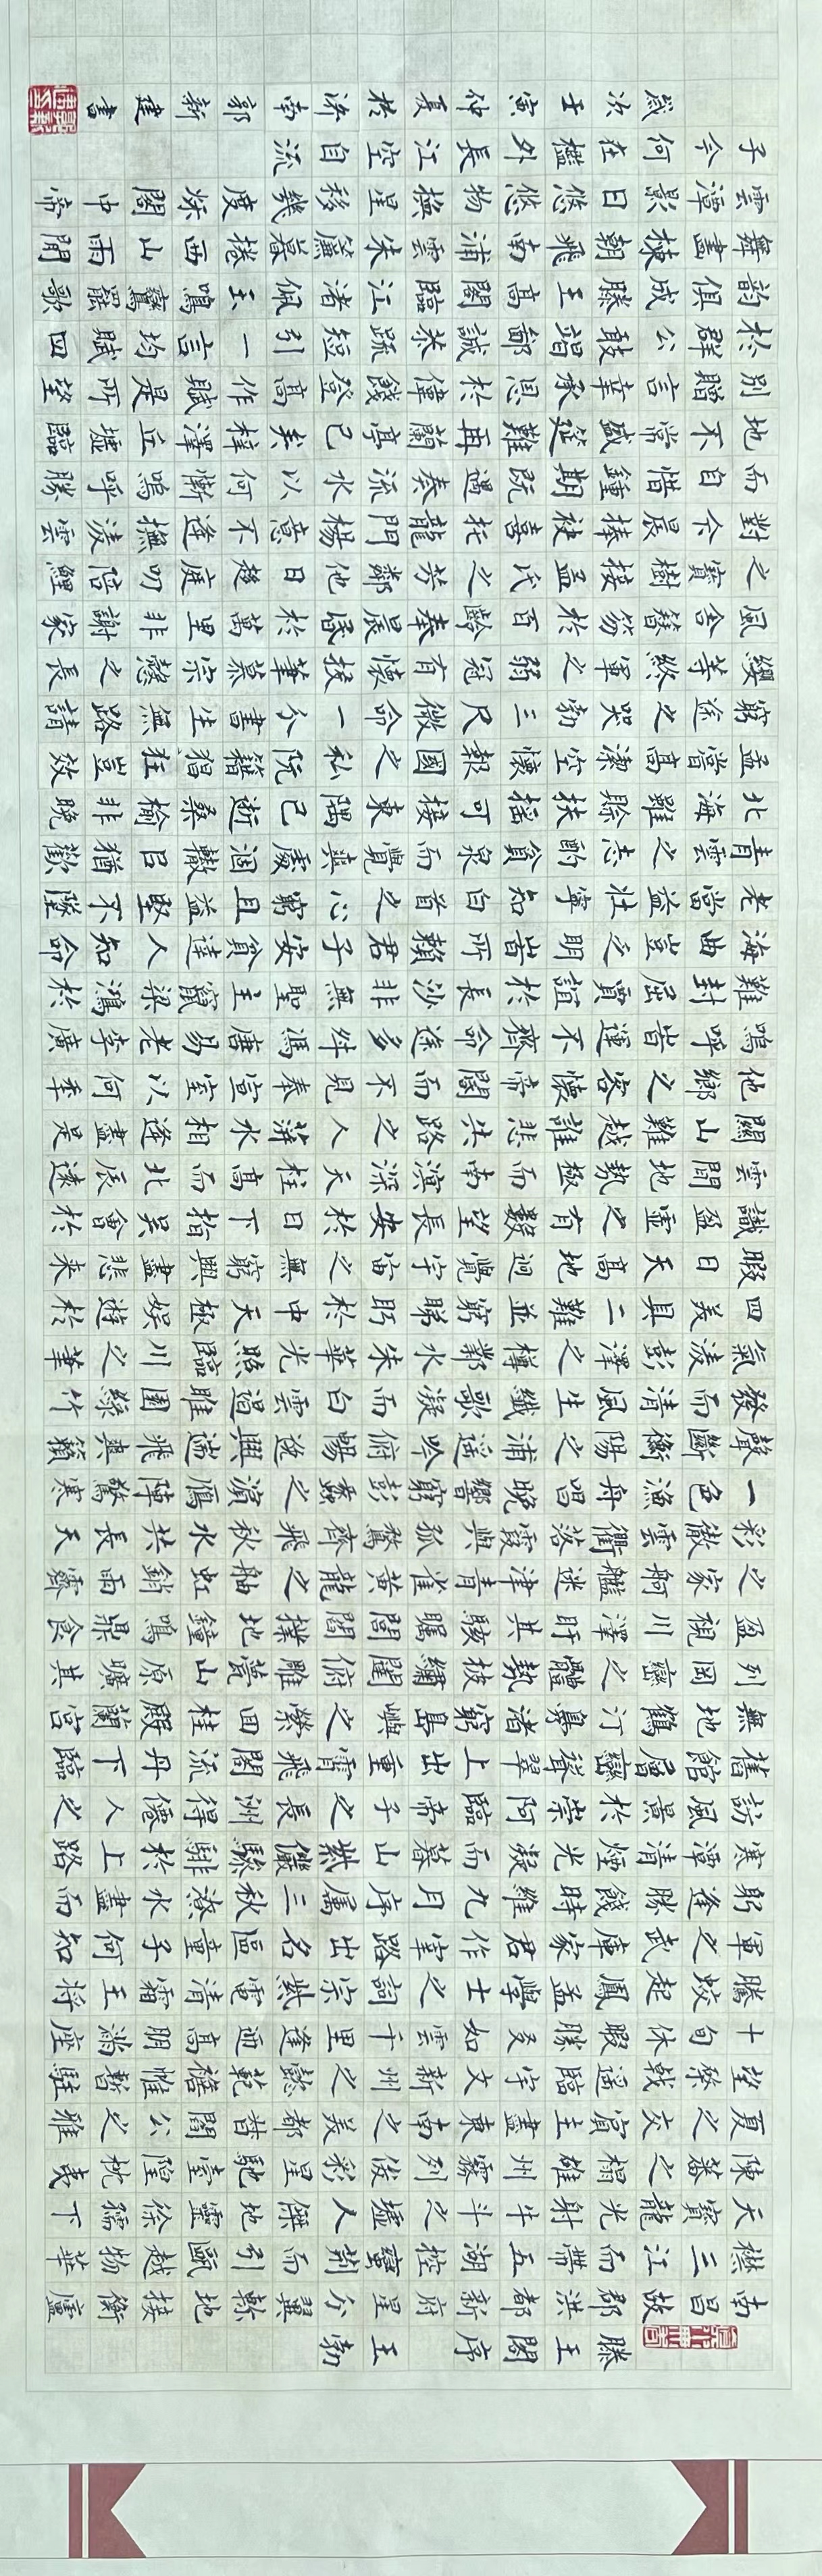 滕王閣序
王勃
南昌故郡洪都新府星分翼軫地接衡廬
襟三江而帶五湖控蠻荊而引甌越物華
天寶龍光射牛斗之墟人傑地靈徐孺下
陳蕃之榻雄州霧列俊彩星馳臺隍枕夷
夏之交賓主盡東南之美都督閻公之雅
望棨戟遙臨宇文新州之懿範襜帷暫駐
十旬休暇勝友如雲千里逢迎高朋滿座
騰蛟起鳳孟學士之詞宗紫電清霜王將
軍之武庫家君作宰路出名區童子何知
躬逢勝餞時維九月序属三秋潦水盡而
寒潭清煙光凝而暮山紫儼驂騑於上路
訪風景於崇阿臨帝子之長洲得僊人之
舊館層巒聳翠上出重霄飛閣流丹下臨
無地鶴汀鳧渚窮島嶼之縈回桂殿蘭宮
列岡巒之體勢披繡闥俯雕甍山原曠其
盈視川澤盱其駭矚閭閻撲地鐘鳴鼎食
之家舸艦迷津青雀黃龍之舳虹銷雨霽
彩徹雲衢落霞與孤鶩齊飛秋水共長天
一色漁舟唱晚響窮彭蠡之濱雁陣驚寒
聲斷衡陽之浦遙吟俯暢逸興遄飛爽籟
發而清風生纖歌凝而白雲遏睢園綠竹
氣凌彭澤之樽鄴水朱華光照臨川之筆
四美具二難並窮睇眄於中天極娛遊於
暇日天高地迥覺宇宙之無窮興盡悲來
識盈虛之有數望長安於日下指吳會於
雲間地勢極而南溟深天柱高而北辰遠
關山難越誰悲失路之人萍水相逢盡是
他鄉之客懷帝閽而不見奉宣室以何秊
嗚呼旹運不齊命途多舛馮唐易老李廣
難封屈賈誼於長沙非無聖主竄梁鴻於
海曲豈乏明旹所賴君子安貧達人知命
老當益壯寧知白首之心窮且益堅不墜
青雲之志酌貪泉而覺爽處涸轍㠯猶歡
北海雖賒扶搖可接東隅已逝桑榆非晚
孟嘗高潔空懷報國之私阮籍猖狂豈效
窮途之哭勃三尺微命一介書生無路請
纓等終軍之弱冠有懷投筆慕宗慤之長
風舍簪笏於百齡奉晨昏於萬里非謝家
之寶樹接孟氏之芳鄰他日趨庭叨陪鯉
對今晨捧袂喜托龍門楊意不逢撫凌雲
而自惜鍾期既遇奏流水以何慚嗚呼勝
地不常盛筵難再蘭亭已矣梓澤丘墟臨
別贈言幸承恩於偉餞登高作賦是所望
於群公敢竭鄙誠恭疏短引一言均賦四
韵俱成滕王高閣臨江渚佩玉鳴鸞罷歌
舞畫棟朝飛南浦雲朱簾暮捲西山雨閒
雲潭影日悠悠物換星移幾度秋閣中帝
子今何在檻外長江空自流
歲次壬寅仲夏於濟南郭新建書